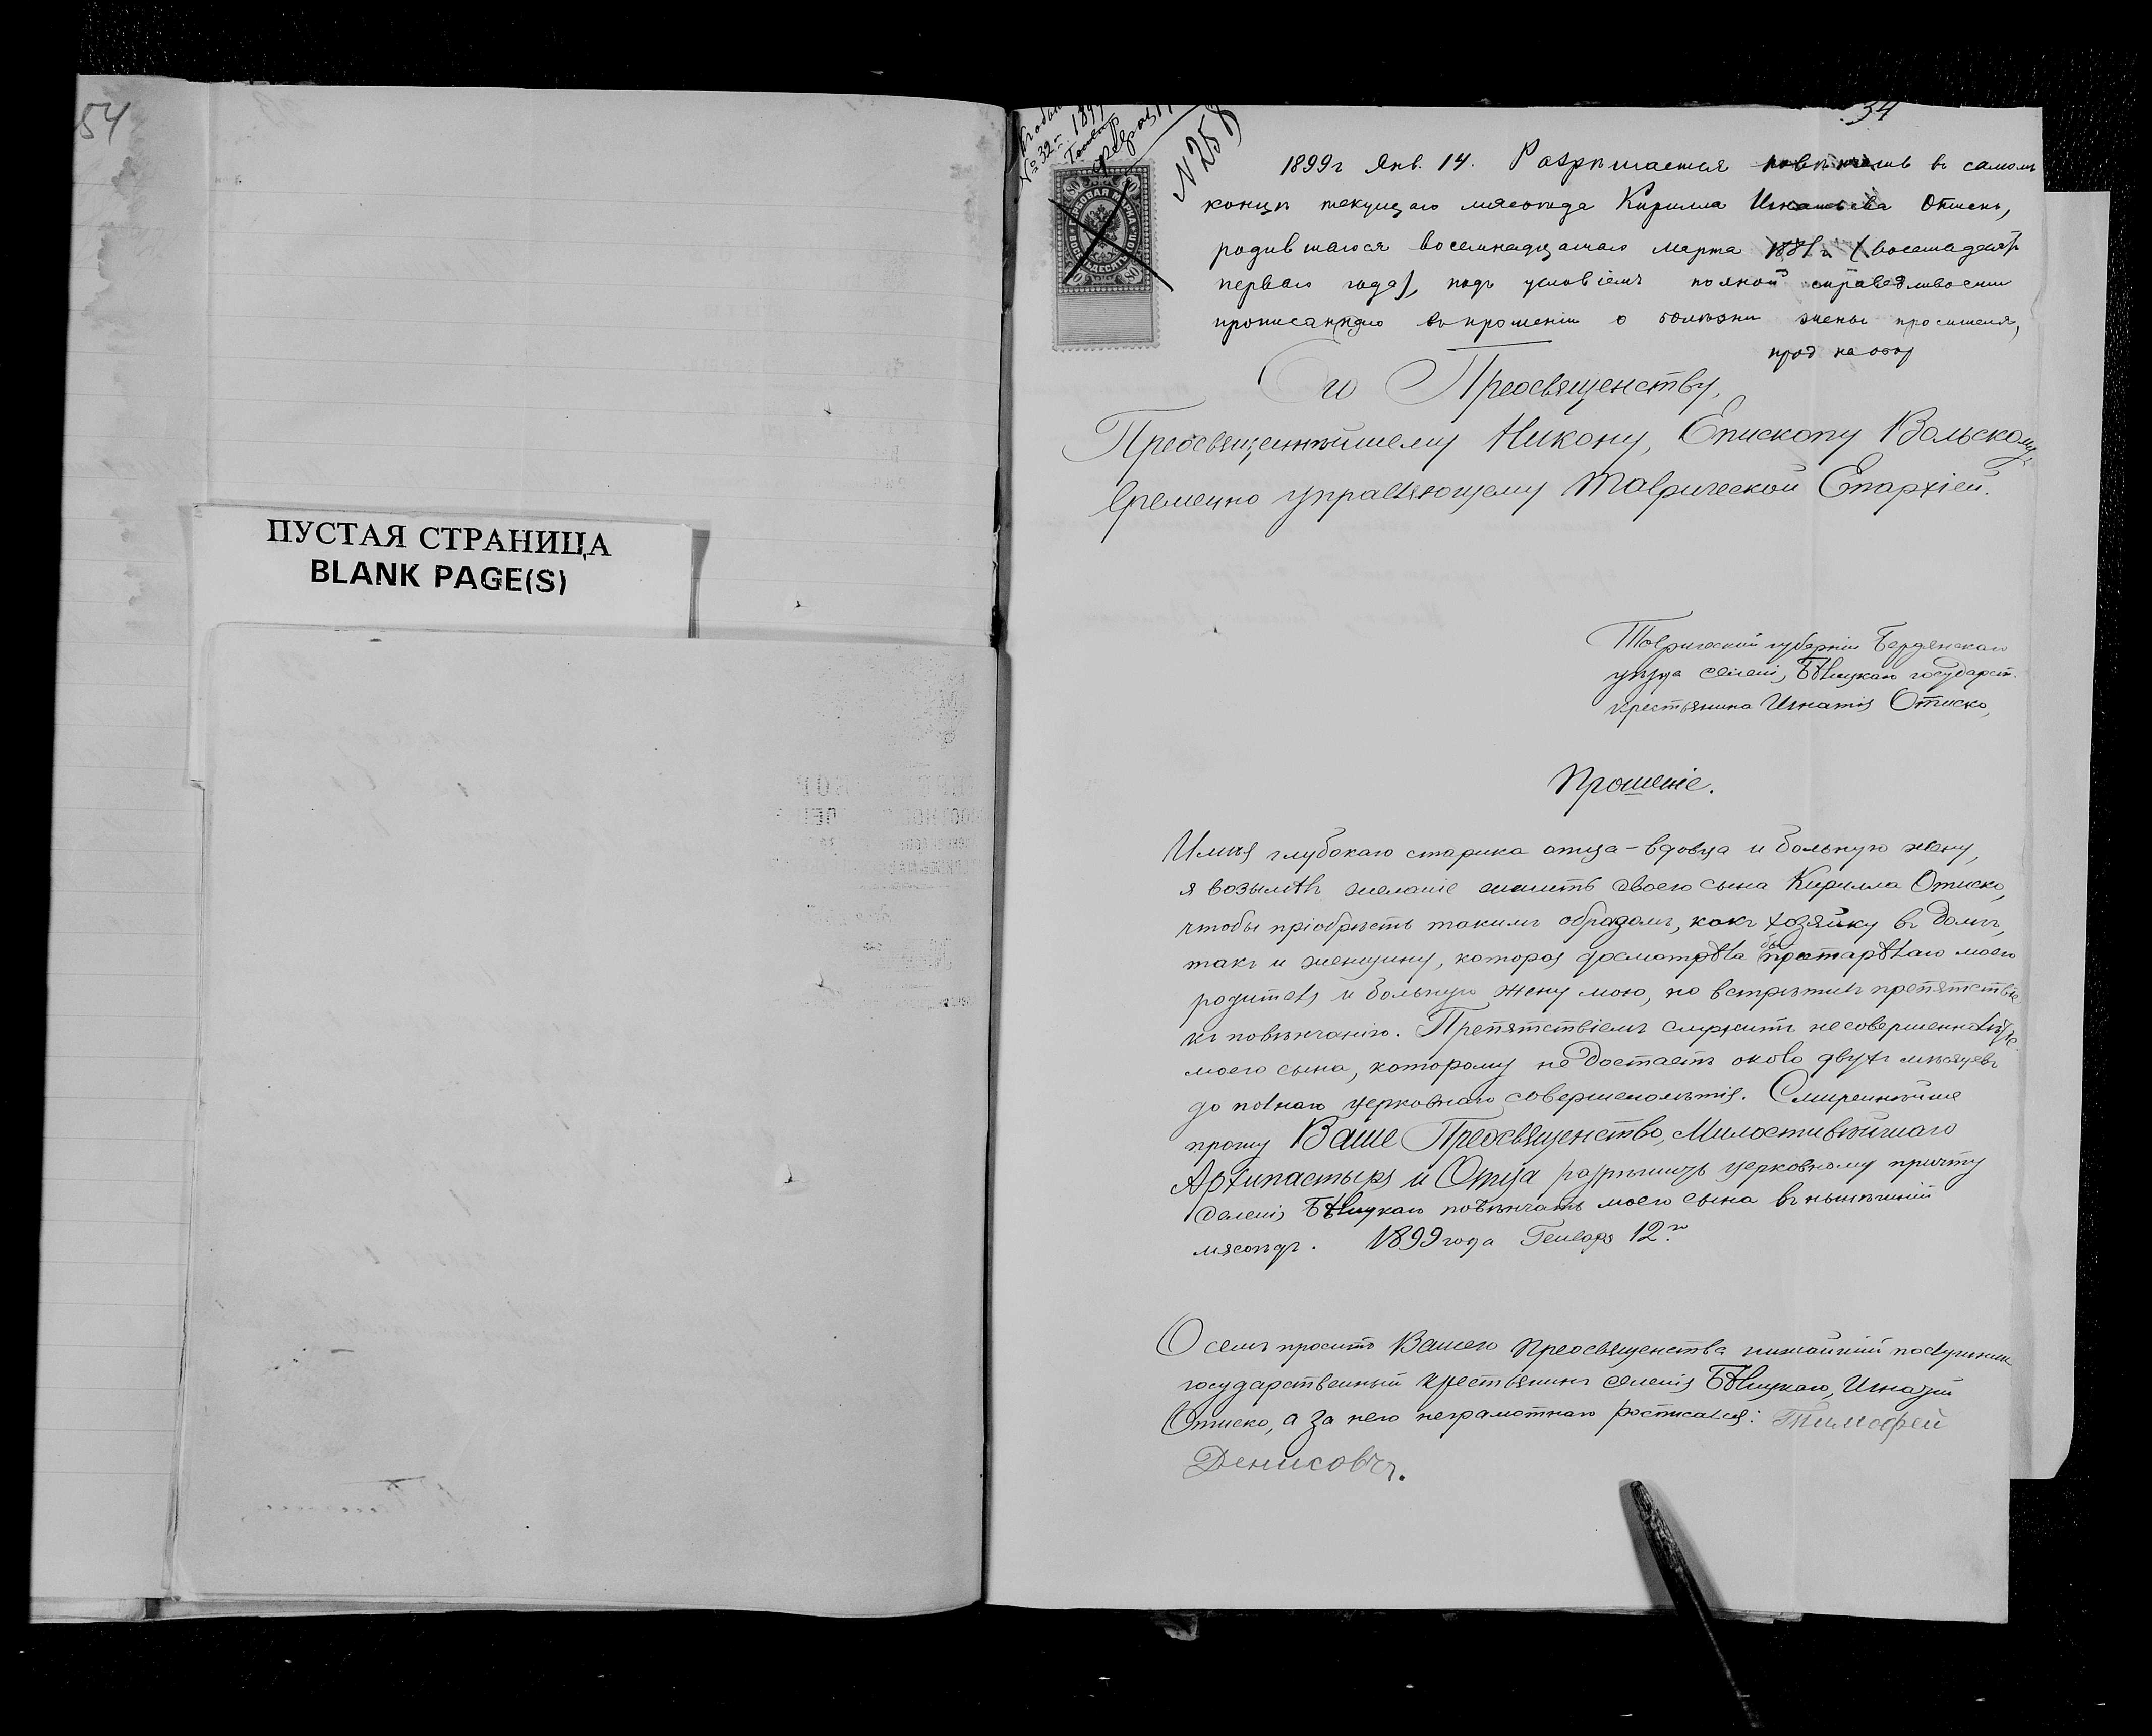 54
ПУСТАЯ СТРАНИЦА
BLANK PAGE(S)
34
№ 32
№258
1899 г Янв. 14. Разрѣшается повѣнчать въ самомъ
концѣ текущаго мясоѣда Кирилла Игнатьева Отиско,
родившагося восемнадцатаго марта 1881 г. (восемьдесятъ
перваго года), подъ условіемъ полной справедливости
прописаннаго въ прошеніи о болѣзни жены просителя,
прод на обор
Его Преосвященству,
Преосвященнѣйшему Никону, Епископу Вольскому,
временно управляющему Таврической Епархіей.
Таврической губерніи Бердянскаго
уѣзда селенія Бѣлицкаго государст.
крестьянина Игнатія Отиско,
Прошеніе.
Имѣя глубокаго старика отца-вдовца и больную жену,
я возымѣлъ желаніе женить своего сына Кирилла Отиско,
чтобы пріобрѣсть такимъ образомъ, какъ хозяйку въ домъ,
такъ и женщину, которая досмотрѣла бы престарѣлаго моего
родителя и больную жену мою, но встрѣтилъ препятствіе
къ повѣнчанію. Препятствіемъ служитъ несовершеннолѣтіе
моего сына, которому не достаетъ около двухъ мѣсяцевъ
до полнаго церковнаго совершеннолѣтія. Смиреннѣйше
прошу Ваше Преосвященство, Милостивѣйшаго
Архипастыря и Отца разрѣшить церковному причту
селенія Бѣлицкаго повѣнчать моего сына въ нынѣшній
мясоѣдъ. 1899 года Генваря 12 го
О семъ проситъ Вашего Преосвященства нижайшій послушникъ
государственный крестьянинъ селенія Бѣлицкаго, Игнатій
Отиско, а за него неграмотнаго росписался: Тимофей
Денисовъ.